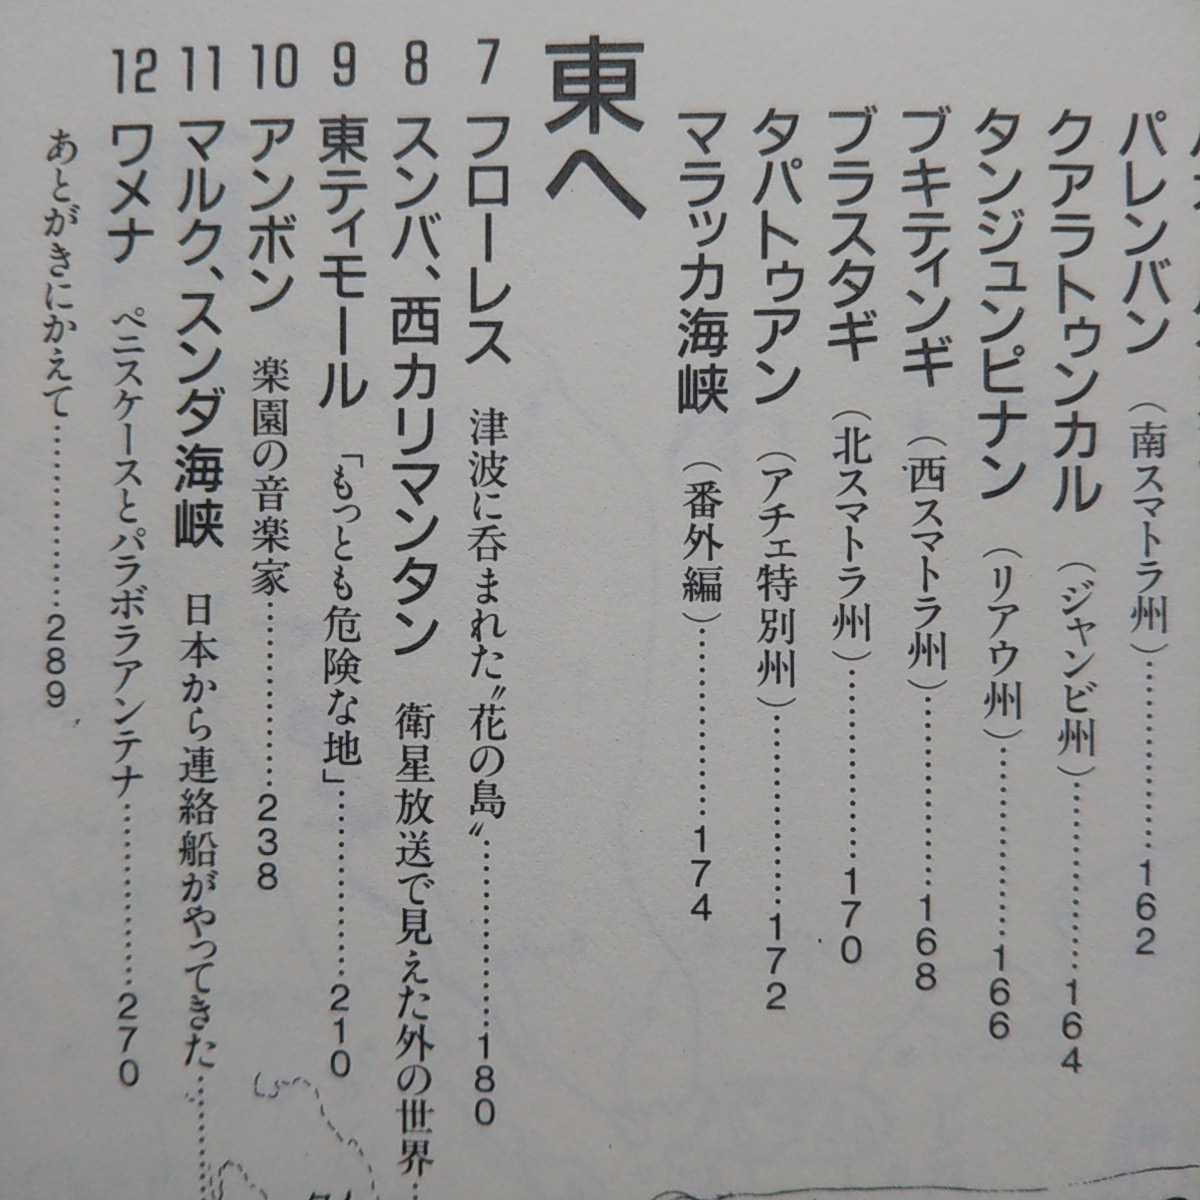 パレンバン（南スマトラ州）……………162
クアラトゥンカル（ジャンビ州）……………164
タンジュンピナン（リアウ州）……………166
ブキティンギ（西スマトラ州）……………168
ブラスタギ（北スマトラ州）……………170
タパトゥアン（アチェ特別州）……………172
マラッカ海峡（番外編）……………174
東へ
7 フローレス 津波に呑まれた〝花の島〟……………180
8 スンバ、西カリマンタン 衛星放送で見えた外の世界
9 東ティモール 「もっとも危険な地」……………210
10 アンボン 楽園の音楽家……………238
11 マルク、スンダ海峡 日本から連絡船がやってきた……
12 ワメナ ペニスケースとパラボラアンテナ……………270
あとがきにかえて……………289